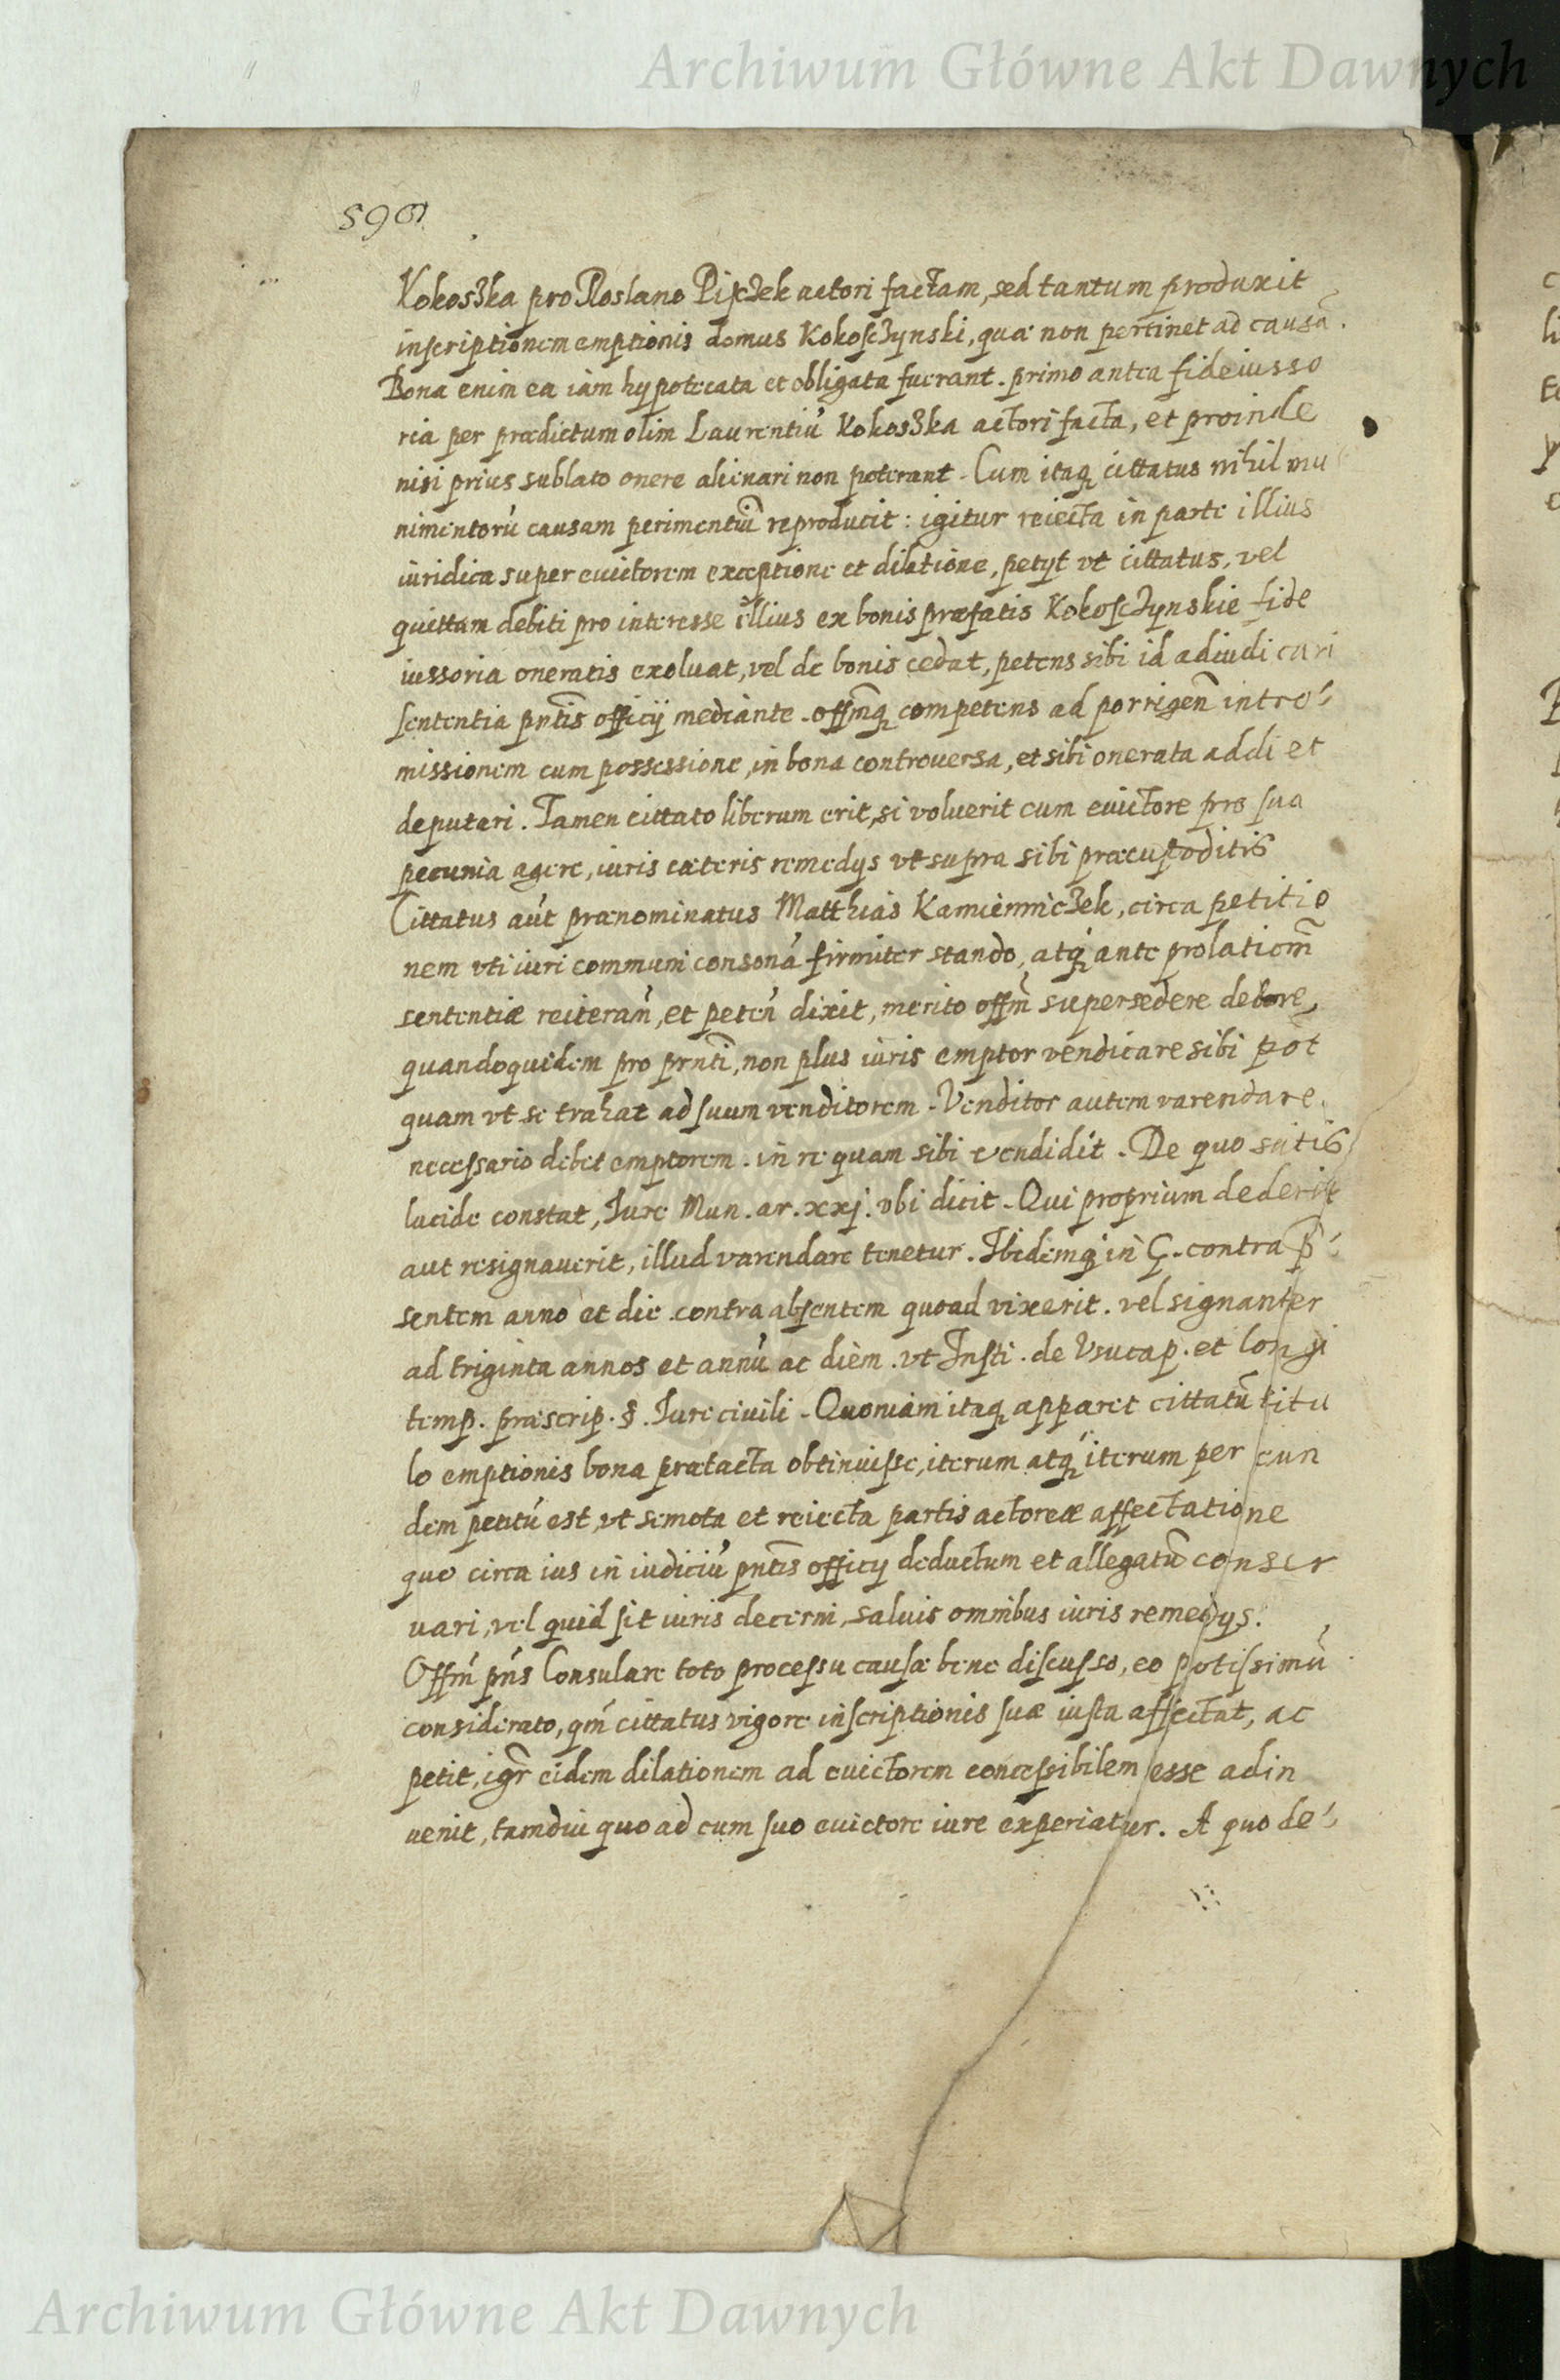 Archiwum Główne Akt Dawnych
590
Kokoszka pro Roslano Pijczek actori factam, sed tantum produxit
inscriptionem emptionis domus Kokosczynski, quæ non pertinet ad causã.
Bona enim ea iam hypotecata et obligata fuerant. primo antea fideiusso
ria per prædictum olim Laurentiũ Kokoszka actori facta, et proinde
nisi prius sublato onere alienari non poterant. Cum itaq cittatus nihil mu
nimentorũ causam perimentiũ reproducit: igitur reiecta in parte illius
iuridica super euictorem exceptione et dilatione, petijt vt cittatus, vel
quittam debiti pro interesse illius ex bonis præfatis Kokosczynskie fide
iussoria oneratis exoluat, vel de bonis cedat, petens sibi id adiudicari
sententia pñtis officij mediante. offmq competens ad porrigeñ intro
missionem cum possessione, in bona controuersa, et sibi onerata addi et
deputari. Tamen cittato liberum erit, si voluerit cum euictore pro sua
pecunia agere, iuris cæteris remedijs vt supra sibi præcustoditis
Cittatus aũt prænominatus Matthias Kamienniczek, circa petitio
nem vti iuri communi consonã firmiter stando, atq ante prolationẽ
sententiæ reiterañ, et peteñ dixit, merito offm̃ supersedere debere,
quandoquidem pro prñti, non plus iuris emptor vendicare sibi põt
quam vt se trahat ad suum venditorem. Venditor autem varendare
necessario debet emptorem. in re quam sibi vendidit. De quo satis
lucide constat, Iure Mun. ar. xxj. vbi dicit. Qui proprium dederit
aut resignauerit, illud varendare tenetur. Ibidemq in §. contra p̃
sentem anno et die contra absentem quoad vixerit. vel signanter
ad triginta annos et annũ ac diem. vt Insti. de Vsucap. et longi
temp. præscrip. §. Iure ciuili. Quoniam itaq apparet cittatũ titu
lo emptionis bona prætacta obtinuisse, iterum atq iterum per eun
dem petitũ est, vt semota et reiecta partis actoreæ affectatione
quo circa ius in iudiciũ pñtis officij deductum et allegatũ conser
uari, vel quid sit iuris decerni, saluis omnibus iuris remedijs.
Offm̃ pñs Consulare toto processu causæ bene discusso, eo potissimũ
considerato, qm̃ cittatus vigore inscriptionis suæ iusta affectat, ac
petit, igr̃ eidem dilationem ad euictorem concessibilem esse adin
uenit, tamdiu quoad cum suo euictore iure experiatur. A quo de
Archiwum Główne Akt Dawnych